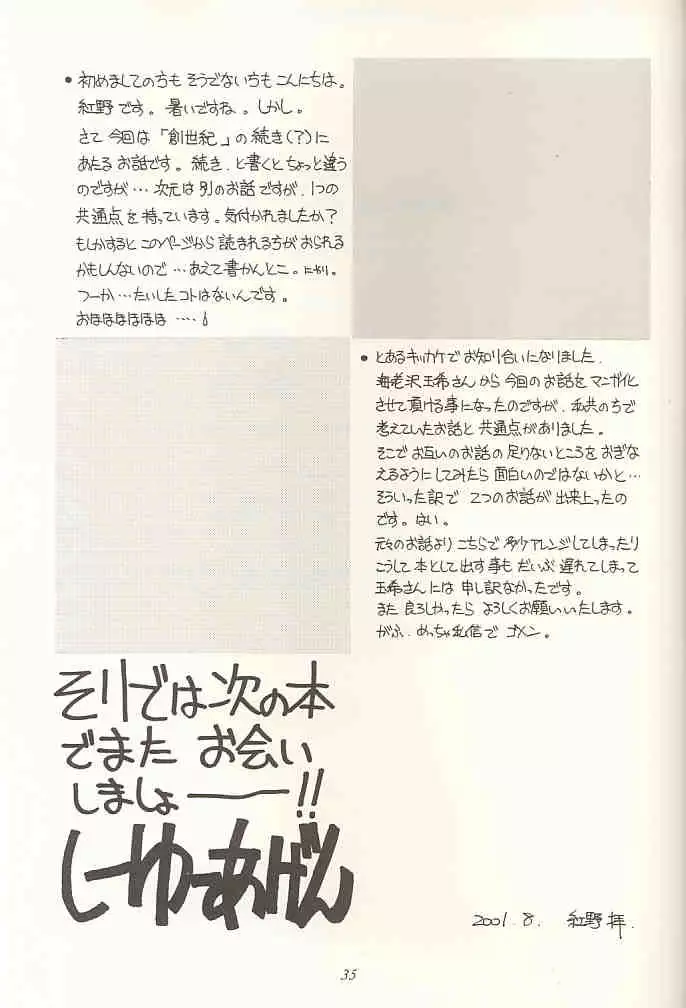 • 初めましての方も そうでない方も こんにちは。
紅野です。暑いですね。しかし。
さて 今回は「創世紀」の続き(?)に
あたる お話です。続き、と書くと ちょっと違う
のですが… 次元は 別のお話ですが、1つの
共通点を 持っています。気付かれましたか?
もしかすると このページから 読まれる方が おられる
かもしんないので …あえて書かんとこ。にやり。
つーか…たいしたコトはないんです。
おほほほほほほ ….!
• とあるキッカケで お知り合いになりました、
海老沢玉希さん から 今回のお話を マンガ化
させて 頂ける事に なったのですが、私共のうちで
考えていたお話と 共通点がありました。
そこで お互いのお話の 足りないところを おぎな
えるように してみたら 面白いのではないかと…
そういった訳で 2つのお話が 出来上ったの
です。はい。
元々のお話より こちらで 多々アレンジしてしまったり
こうして 本として出す事も だいぶ 遅れてしまって
玉希さんには 申し訳なかったです。
また 良ろしかったら よろしくお願いいたします。
がふ、めっちゃ私信で ゴメン。
そりでは次の本
でまた お会い
しましょ――!!
しーゆーあげん
2001.8. 紅野 拝.
35